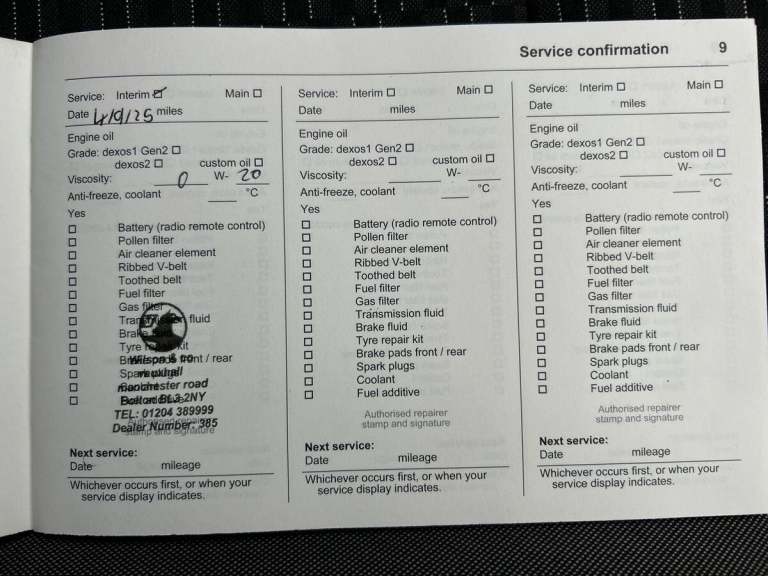 Service confirmation 9
Service: Interim ☑ Main ☐
Date 4/9/25 miles
Engine oil
Grade: dexos1 Gen2 ☐
dexos2 ☐ custom oil ☐
Viscosity: 0 W- 20
Anti-freeze, coolant ____ °C
Yes
☐ Battery (radio remote control)
☐ Pollen filter
☐ Air cleaner element
☐ Ribbed V-belt
☐ Toothed belt
☐ Fuel filter
☐ Gas filter
☐ Transmission fluid
☐ Brake fluid
☐ Tyre repair kit
☐ Brake pads front / rear
☐ Spark plugs
☐ Coolant
☐ Fuel additive
Wilson & co
vauxhall
manchester road
Bolton BL3 2NY
TEL: 01204 389999
Dealer Number: 385
Authorised repairer
stamp and signature
Next service:
Date mileage
Whichever occurs first, or when your
service display indicates.
Service: Interim ☐ Main ☐
Date miles
Engine oil
Grade: dexos1 Gen2 ☐
dexos2 ☐ custom oil ☐
Viscosity: ____ W- ____
Anti-freeze, coolant ____ °C
Yes
☐ Battery (radio remote control)
☐ Pollen filter
☐ Air cleaner element
☐ Ribbed V-belt
☐ Toothed belt
☐ Fuel filter
☐ Gas filter
☐ Transmission fluid
☐ Brake fluid
☐ Tyre repair kit
☐ Brake pads front / rear
☐ Spark plugs
☐ Coolant
☐ Fuel additive
Authorised repairer
stamp and signature
Next service:
Date mileage
Whichever occurs first, or when your
service display indicates.
Service: Interim ☐ Main ☐
Date miles
Engine oil
Grade: dexos1 Gen2 ☐
dexos2 ☐ custom oil ☐
Viscosity: ____ W- ____
Anti-freeze, coolant ____ °C
Yes
☐ Battery (radio remote control)
☐ Pollen filter
☐ Air cleaner element
☐ Ribbed V-belt
☐ Toothed belt
☐ Fuel filter
☐ Gas filter
☐ Transmission fluid
☐ Brake fluid
☐ Tyre repair kit
☐ Brake pads front / rear
☐ Spark plugs
☐ Coolant
☐ Fuel additive
Authorised repairer
stamp and signature
Next service:
Date mileage
Whichever occurs first, or when your
service display indicates.